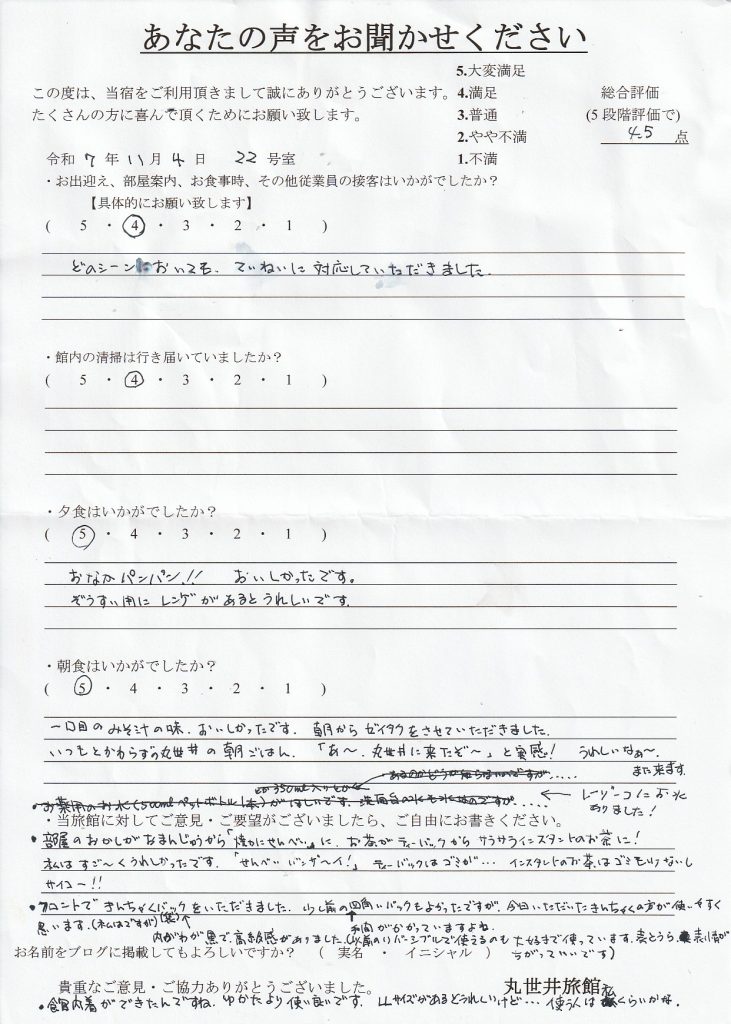 あなたの声をお聞かせください
5.大変満足
この度は、当宿をご利用頂きまして誠にありがとうございます。 4.満足 総合評価
たくさんの方に喜んで頂くためにお願い致します。 3.普通 (5 段階評価で)
2.やや不満 4.5 点
令和 7 年 11 月 4 日 22 号室 1.不満
・お出迎え、部屋案内、お食事時、その他従業員の接客はいかがでしたか？
【具体的にお願い致します】
( 5 ・ 4 ・ 3 ・ 2 ・ 1 )
どのシーンにおいても、ていねいに対応していただきました。
・館内の清掃は行き届いていましたか？
( 5 ・ 4 ・ 3 ・ 2 ・ 1 )
・夕食はいかがでしたか？
( 5 ・ 4 ・ 3 ・ 2 ・ 1 )
おなかパンパン!! おいしかったです。
ぞうすい用にレンゲがあるとうれしいです。
・朝食はいかがでしたか？
( 5 ・ 4 ・ 3 ・ 2 ・ 1 )
一口目のみそ汁の味、おいしかったです。朝からゼイタクをさせていただきました。
いつもとかわらずの丸世井の朝ごはん。「あ～、丸世井に来たぞ～」と実感! うれしいなぁ～。
また来ます。
あるのかどうか知らないのですが.....
350ml入りとか
・お薬用のお水(500mlペットボトル1本)がほしいです。洗面台の水も水なのですが..... ← レーゾーコにお水ありました!
・当旅館に対してご意見・ご要望がございましたら、ご自由にお書きください。
・部屋のおかしがなまんじゅうから「焼かにせんべい」に、お茶がティーバックからサラサラインスタントのお茶に!
私はすご～くうれしかったです。「せんべいバンザ～イ!」ティーバックはゴミが... インスタントのお茶はゴミもいらないし
サイコー!!
・フロントできんちゃくバックをいただきました。少し前の四角いバックもよかったですが、今日いただいたきんちゃくの方が使いやすく
思います。(私はですが)
内がわが黒で、高級感がありました。(以前のリバーシブルで使えるのも大好きで使っています。表とうら、表情が
ちがっていいです)
お名前をブログに掲載してもよろしいですか？ ( 実名 ・ イニシャル )
貴重なご意見・ご協力ありがとうございました。 丸世井旅館
・館内着ができたんですね。ゆかたより使い良いです。LLサイズがあるとうれしいけど... 使う人は私くらいかな。